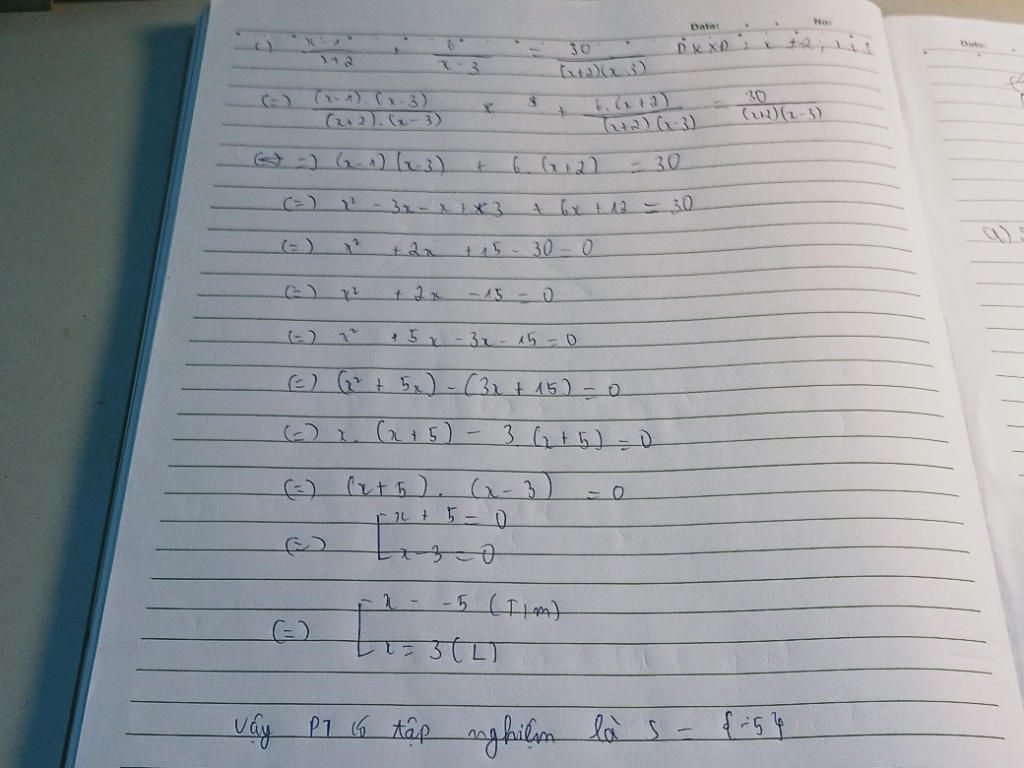 Date: No:
c) x-1/x+2 + 6/x-3 = 30/(x+2)(x-3) ĐKXĐ: x ≠ -2; x ≠ 3
(=) (x-1).(x-3)/(x+2).(x-3) + 6.(x+2)/(x+2)(x-3) = 30/(x+2)(x-3)
=) (x-1)(x-3) + 6.(x+2) = 30
(=) x² - 3x - x + 3 + 6x + 12 = 30
(=) x² + 2x + 15 - 30 = 0
(=) x² + 2x - 15 = 0
(=) x² + 5x - 3x - 15 = 0
(=) (x² + 5x) - (3x + 15) = 0
(=) x. (x + 5) - 3 (x + 5) = 0
(=) (x + 5). (x - 3) = 0
(=) [ x + 5 = 0
x - 3 = 0
(=) [ x = -5 (T/m)
x = 3 (L)
Vậy PT có tập nghiệm là S = {-5}
Date:
a)